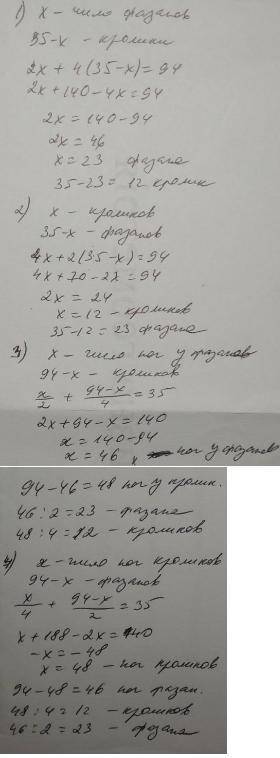 1) х – число фазанов
35-х – кролики
2х + 4(35-х) = 94
2х + 140 - 4х = 94
2х = 140 - 94
2х = 46
х = 23 фазана
35-23 = 12 кролик
2) х – кроликов
35-х – фазанов
4х + 2(35-х) = 94
4х + 70 - 2х = 94
2х = 24
х = 12 - кроликов
35-12 = 23 фазана
3) х – число ног у фазанов
94-х – кроликов
х/2 + (94-х)/4 = 35
2х + 94 - х = 140
х = 140 - 94
х = 46 ног у фазанов
94-46 = 48 ног у кролик.
46 : 2 = 23 - фазана
48 : 4 = 12 - кроликов
4) х – число ног кроликов
94-х – фазанов
х/4 + (94-х)/2 = 35
х + 188 - 2х = 140
-х = -48
х = 48 - ног кроликов
94 - 48 = 46 ног фазан.
48 : 4 = 12 - кроликов
46 : 2 = 23 - фазана